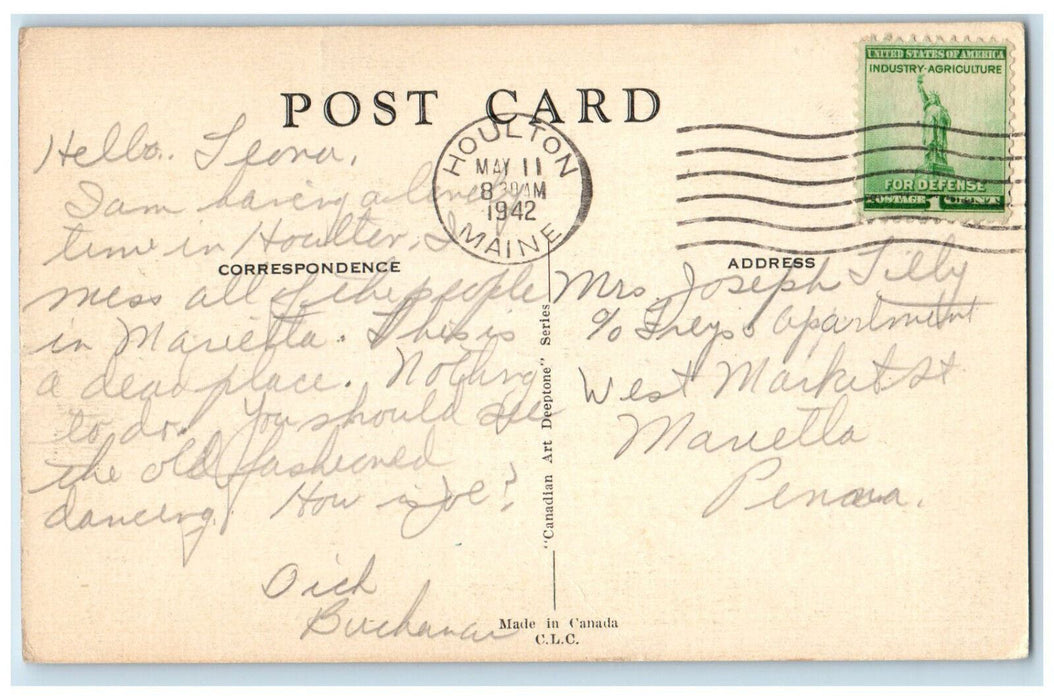 POST CARD
HOULTON
MAY 11
8 30 AM
1942
MAINE
UNITED STATES OF AMERICA
INDUSTRY-AGRICULTURE
FOR DEFENSE
POSTAGE 1 CENT
Hello. Leona.
I am having a lovely
time in Houlton, I
CORRESPONDENCE
mess all of the people
in Marietta. This is
a dead place. Nothing
to do. You should see
the old fashioned
dancing. How is Joe?
Dick
Buchanan
"Canadian Art Deeptone" Series
Made in Canada
C.L.C.
ADDRESS
Mrs. Joseph Tilly
% Frey's apartment
West Market St
Marietta
Penna.